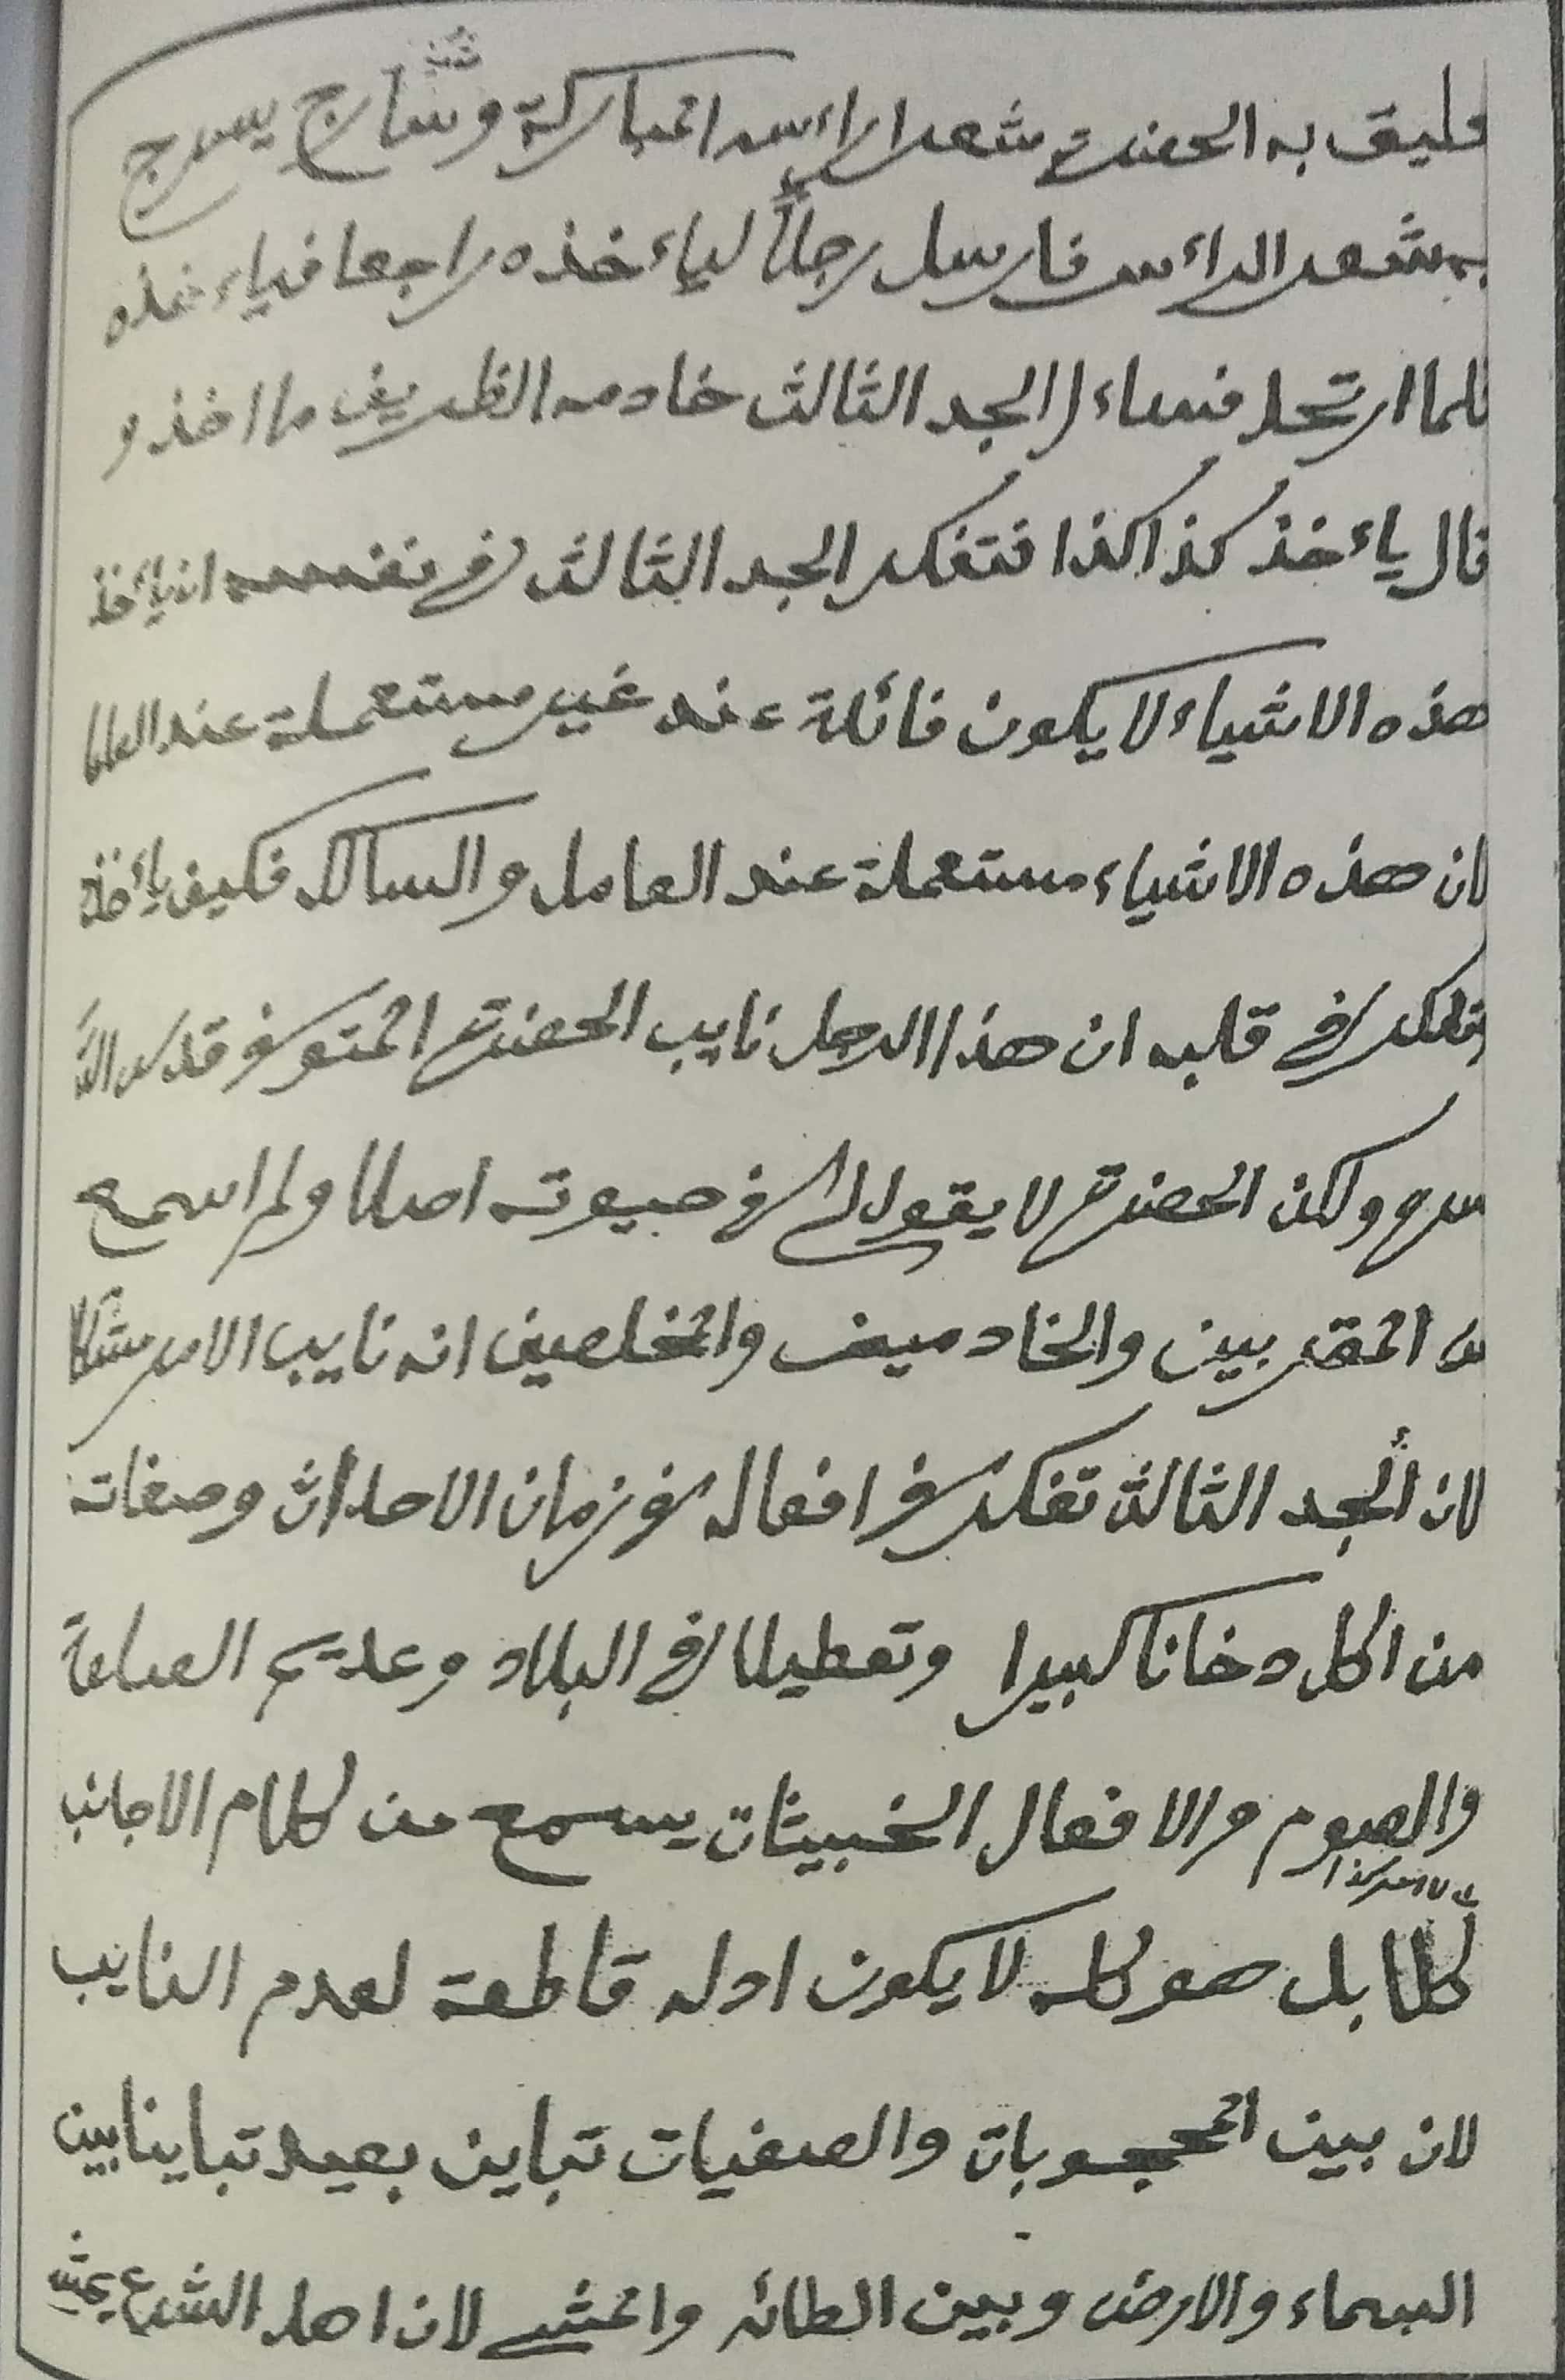 يليق به الحضرت شعر الرائس المباركة وشارج يسرج
بمشعر الرائس فارسل رجلاً لياءخذه راجعا فياءخذه
فلما ارتحل فساءل الجد الثالث خادمه الظريف ما اخذ و
قال ياءخذ كذا كذا فتفكر الجد الثالث في نفسه ان ياءخذ
هذه الاشياء لا يكون فائدة عند غير مستعملة عند العلما
لان هذه الاشياء مستعملة عند العامل والسالك فكيف ياءخذ
وتفكر في قلبه ان هذا الرجل نايب الحضرت المتوفى قدس الله
سره ولكن الحضرت لا يقول لي في حيوته اصلا ولم اسمع
من المقربين والخادمين والمخلصين انه نايب الامر مشكلا
لان ألجد الثالث تفكر في افعاله في زمان الاحداث وصفاته
من اكل دخانا كبيرا وتعطيلا في البلاد وعديم الصلوة
والصوم والافعال الخبيثات يسمع من كلام الاجانب
كلّا بل هو كله لا يكون ادله قاطعة لعدم النايب
لان بين المحجوبات والصفيات تباين بعيد تباينا بين
السماء والارض وبين الطائر والمشي لان اهل الشرع